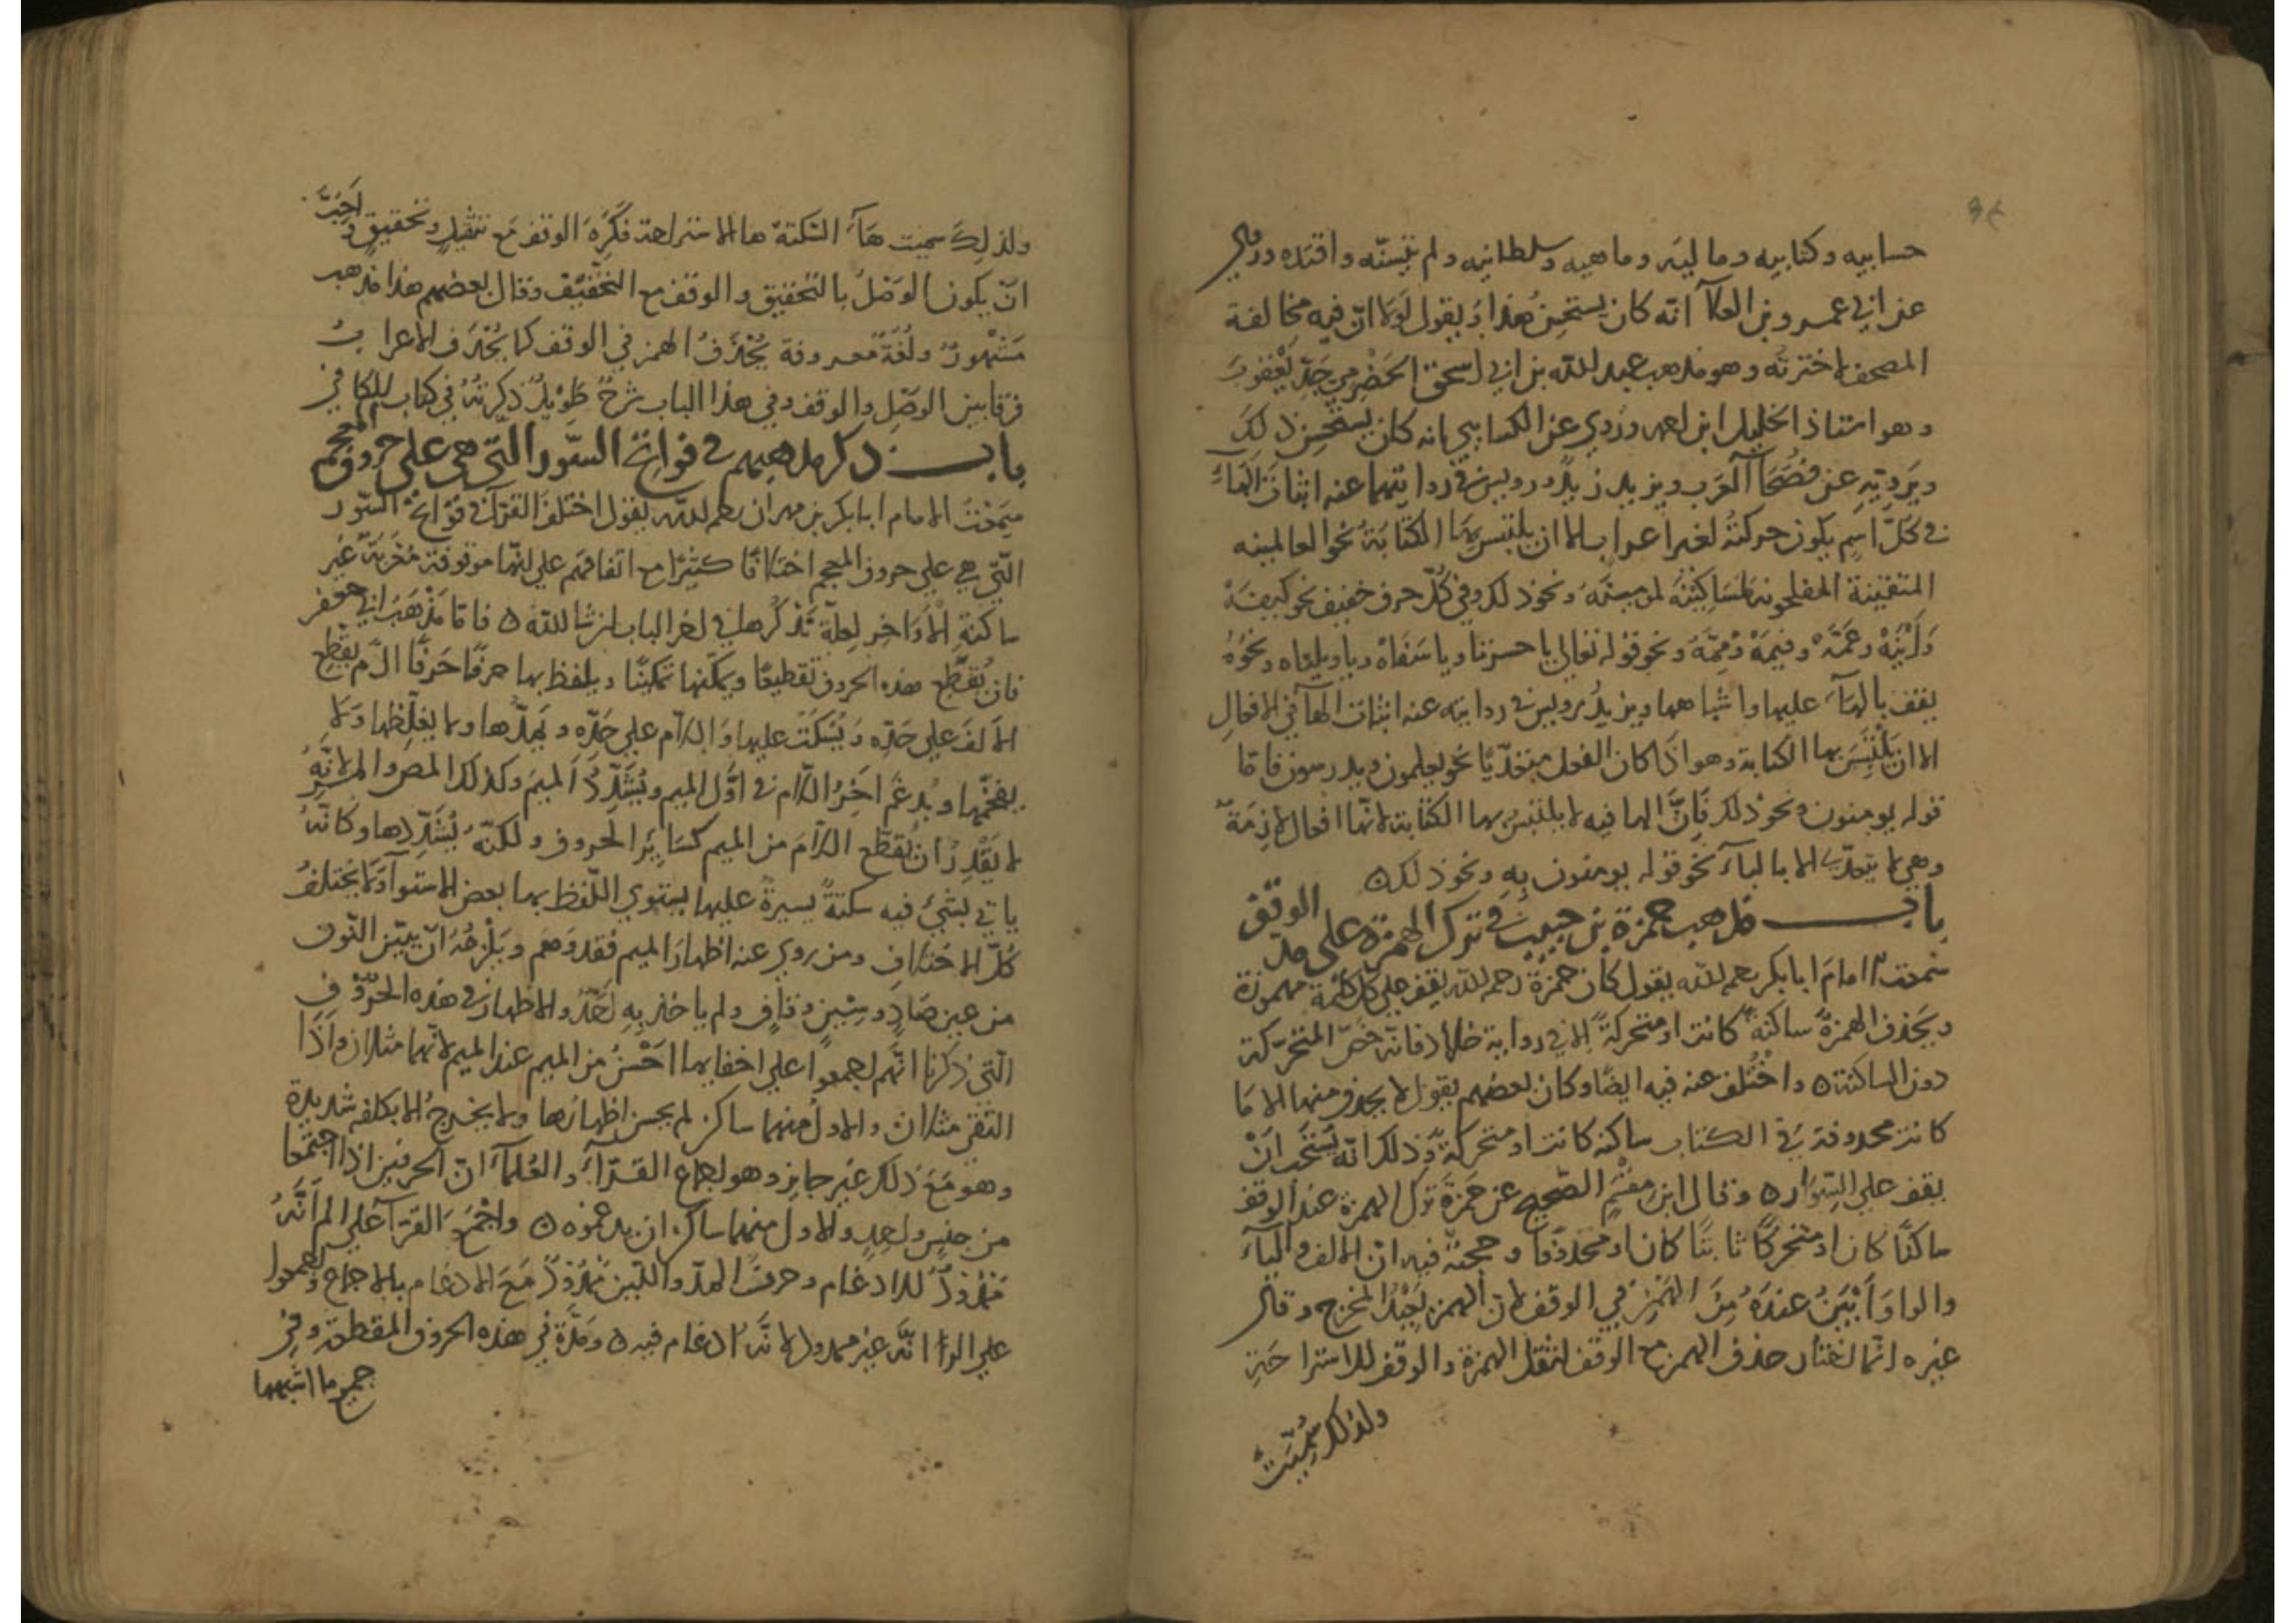 حسابيه وكتابيه وماليه وماهيه وسلطانيه ولم يتسنّه واقتده وروي
عن ابي عمرو بن العلآ انّه كان يستحسن هذا ويقول لولا انّ فيه مخالفة
المصحف لاخترته وهو مذهب عبد الله بن ابي اسحق الحضرمي جدّ يعقوب
وهو استاذ الخليل ابن احمد وروي عن الكسايي انه كان يستحسن ذلك
ويرويه عن فصحآ العرب ويزيد زيد ورويس في روايتهما عنه اثبات الهآء
في كلّ اسم يكون حركته لغير اعراب الا ان يلتبس بها الكتابة نحو العالمينه
المتقينة المفلحونه نحو ذلك وفي كلّ حرف خفيف نحو كيفه
وأينه وعمّه وفيمه وممّه ونحو قوله تعالي يا حسرتاه ويا سفاه ويا ويلتاه ونحوه
يقف بالهآء عليها واشباهها ويزيد رويس في روايته عنه اثبات الهآ في الافعال
الا ان يلتبس بها الكتابة وهو اذا كان الفعل متعدّيًا نحو يعلمون ويدرسون فامّا
قوله يومنون ونحو ذلك فانّ الها فيه لا يلتبس بها الكتابة لانّها افعال لازمة
وهي لا يتعدّي الا بالباء نحو قوله يومنون به ونحو ذلك ه
باب مذهب حمزة بن حبيب في ترك الهمزة علي مدّ الوقف
سمعت الامام ابا بكر رحمه الله يقول كان حمزة رحمه الله يقف علي كل كلمة مهموزة
ويحذف الهمزة ساكنة كانت او متحركة الا في رواية خلاد فانّه خصّ المتحرّكة
دون الساكنة ه واختلف عنه فيه ايضًا وكان بعضهم يقول لا يحذف منها الا ما
كانت محذوفة في الكتاب ساكنة كانت او متحركة وذلك انّه يستحب أنْ
يقف علي السواد ه وقال ابن مقسم الصحيح عن حمزة ترك الهمزة عند الوقف
ساكنًا كان او متحركًا ثابتًا كان او محذوفًا وحجته فيه انّ الالف والياء
والواو أبْيَنُ عنده من الهمز في الوقف لانّ الهمزة بعيد المخرج وقال
غيره انّما اختار حذف الهمز مع الوقف لثقل الهمزة والوقف للاستراحة
ولذلك سُمّيت
ولذلك سميت هآء السكتة ها الاستراحة فكره الوقف مع تثقيل وتحقيق واحبّ
انّ يكون الوصل بالتحقيق والوقف مع التخفيف وقال بعضهم هذا مذهب
مشهور ولغة معروفة يُحذف الهمز في الوقف كما يُحذف الاعراب
فرقًا بين الوصل والوقف وفي هذا الباب شرح طويل ذكرته في كتاب الكافي
باب ذكر مذاهبهم في فواتح السّور التّي هي علي حروف المعجم
سمعت الامام ابا بكر بن مهران رحمه الله يقول اختلف القرّآ في فواتح السّور
التّي هي علي حروف المعجم اختلافًا كثيرًا مع اتفاقهم علي انّها موقوفة غير
ساكنة الأواخر لعلة نذكرها في اخر الباب ان شا الله ه فامّا مذهب ابي جعفر
فان يُقطّع هذه الحروف تقطيعًا ويمكّنها تمكينًا ويلفظ بها حرفًا حرفًا الٓم يقطع
الالف علي حدّه ويسكت عليها والّلام علي حدّه ويمدّها ولا يغلّظها ولا
يفخّمها ويدغم اخر اللّام في اوّل الميم ويشدّد الميم وكذلك المص والمر لانّه
لا يقدر ان يقطّع اللّام من الميم كساير الحروف ولكنّه يشدّدها وكانّه
ياتي بشيء فيه سكتة يسيرة عليها يستوي اللّفظ بها بعض الاستوآء ولا يختلف
كلّ الاختلاف ومن روي عنه اظهار الميم فقد وهم ويلزمه انّ يبيّن النّون
من عين صاد وسين وقاف ولم ياخذ به احد والاظهار في هذه الحروف
التّي ذكرنا انّهم اجمعوا علي اخفايها احْسنُ من الميم عند الميم لانّهما مثلان واذا
التقي مثلان والاول منهما ساكن لم يحسن اظهارها ولا يخرج الا بكلفه شديدة
وهو مع ذلك غير جايز وهو اجماع القرّآء والعلمآء انّ الحرفين اذا اجتمعا
من جنس واحد والاول منهما ساكن ان يدغموه ه واجمع القرّآ علي الم انّه
ممدود للادغام وحرف المدّ واللّين ممدود مع الادغام بالاجماع واجمعوا
علي الرا انّه غير ممدود لانّه لا ادغام فيه ه ومدّه في هذه الحروف المقطعة وفي
جميع ما اشبهها